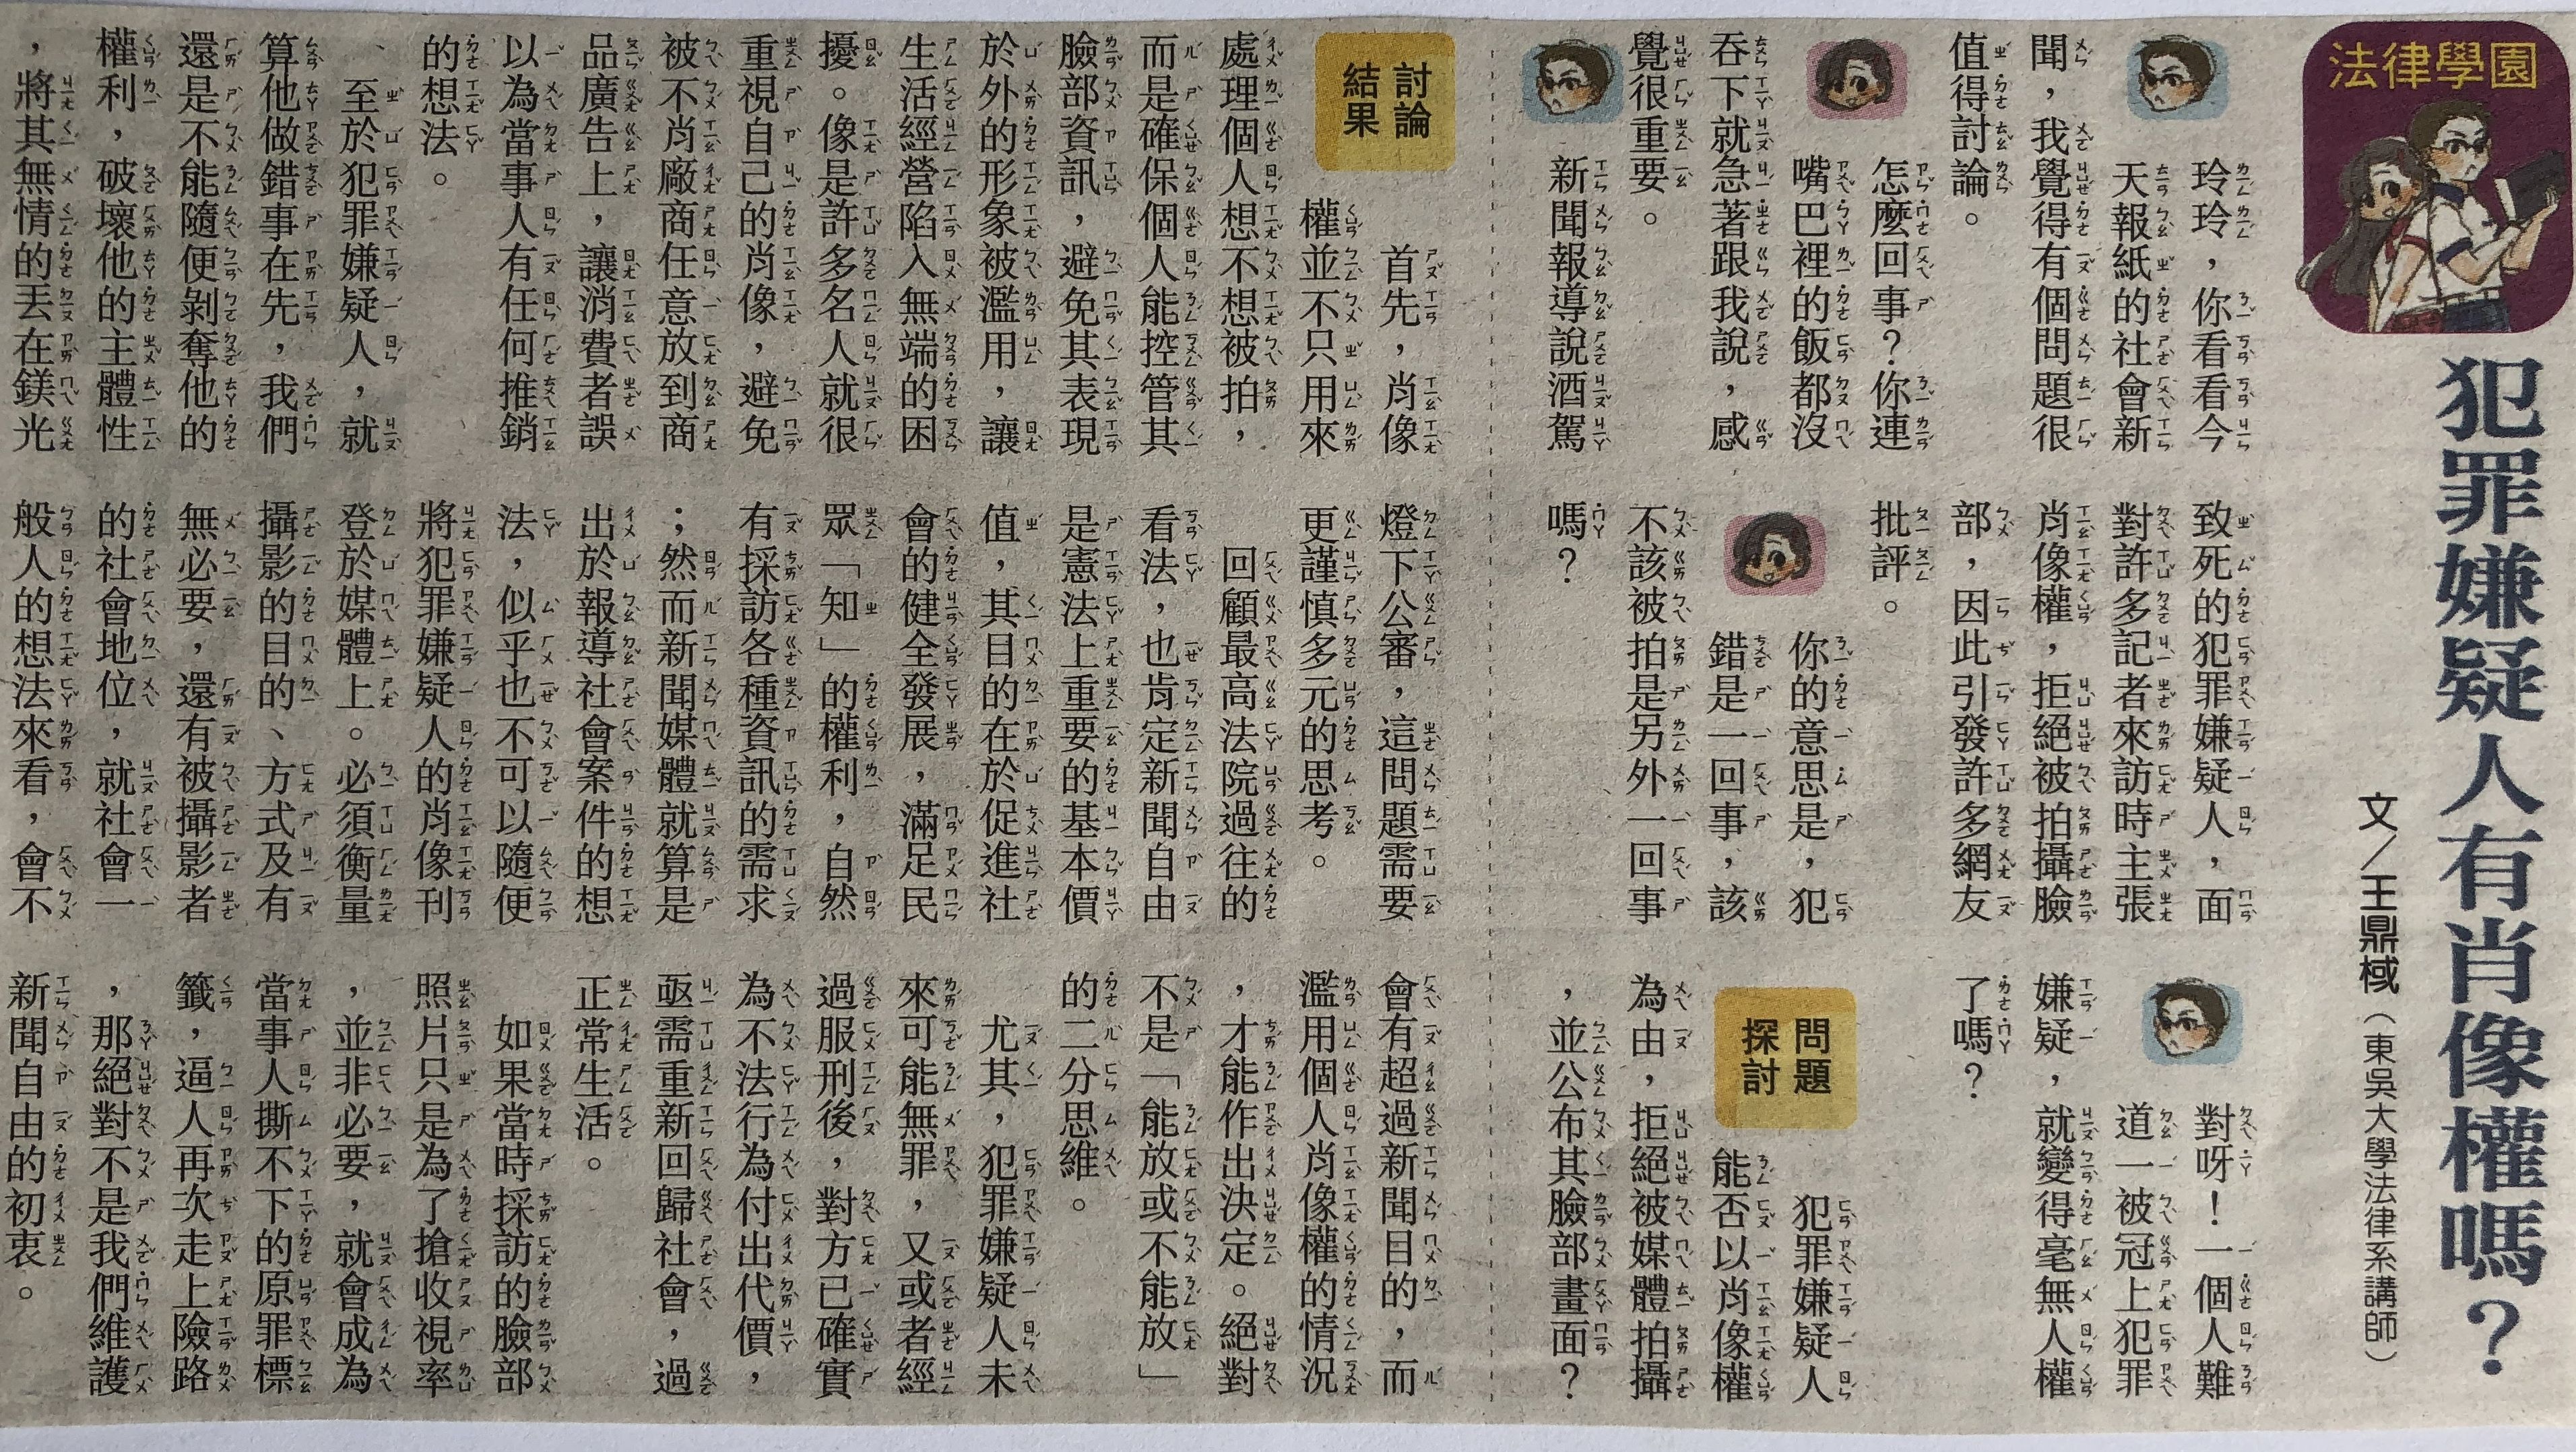 法律學園
犯罪嫌疑人有肖像權嗎？
文／王鼎棫（東吳大學法律系講師）
玲玲，你看看今
天報紙的社會新
聞，我覺得有個問題很
值得討論。
怎麼回事？你連
嘴巴裡的飯都沒
吞下就急著跟我說，感
覺很重要。
新聞報導說酒駕
致死的犯罪嫌疑人，面
對許多記者來訪時主張
肖像權，拒絕被拍攝臉
部，因此引發許多網友
批評。
你的意思是，犯
錯是一回事，該
不該被拍是另外一回事
嗎？
對呀！一個人難
道一被冠上犯罪
嫌疑，就變得毫無人權
了嗎？
問題
探討
犯罪嫌疑人
能否以肖像權
為由，拒絕被媒體拍攝
，並公布其臉部畫面？
討論
結果
首先，肖像
權並不只用來
處理個人想不想被拍，
而是確保個人能控管其
臉部資訊，避免其表現
於外的形象被濫用，讓
生活經營陷入無端的困
擾。像是許多名人就很
重視自己的肖像，避免
被不肖廠商任意放到商
品廣告上，讓消費者誤
以為當事人有任何推銷
的想法。
至於犯罪嫌疑人，就
算他做錯事在先，我們
還是不能隨便剝奪他的
權利，破壞他的主體性
，將其無情的丟在鎂光
燈下公審，這問題需要
更謹慎多元的思考。
回顧最高法院過往的
看法，也肯定新聞自由
是憲法上重要的基本價
值，其目的在於促進社
會的健全發展，滿足民
眾「知」的權利，自然
有採訪各種資訊的需求
；然而新聞媒體就算是
出於報導社會案件的想
法，似乎也不可以隨便
將犯罪嫌疑人的肖像刊
登於媒體上。必須衡量
攝影的目的、方式及有
無必要，還有被攝影者
的社會地位，就社會一
般人的想法來看，會不
會有超過新聞目的，而
濫用個人肖像權的情況
，才能作出決定。絕對
不是「能放或不能放」
的二分思維。
尤其，犯罪嫌疑人未
來可能無罪，又或者經
過服刑後，對方已確實
為不法行為付出代價，
亟需重新回歸社會，過
正常生活。
如果當時採訪的臉部
照片只是為了搶收視率
，並非必要，就會成為
當事人撕不下的原罪標
籤，逼人再次走上險路
，那絕對不是我們維護
新聞自由的初衷。